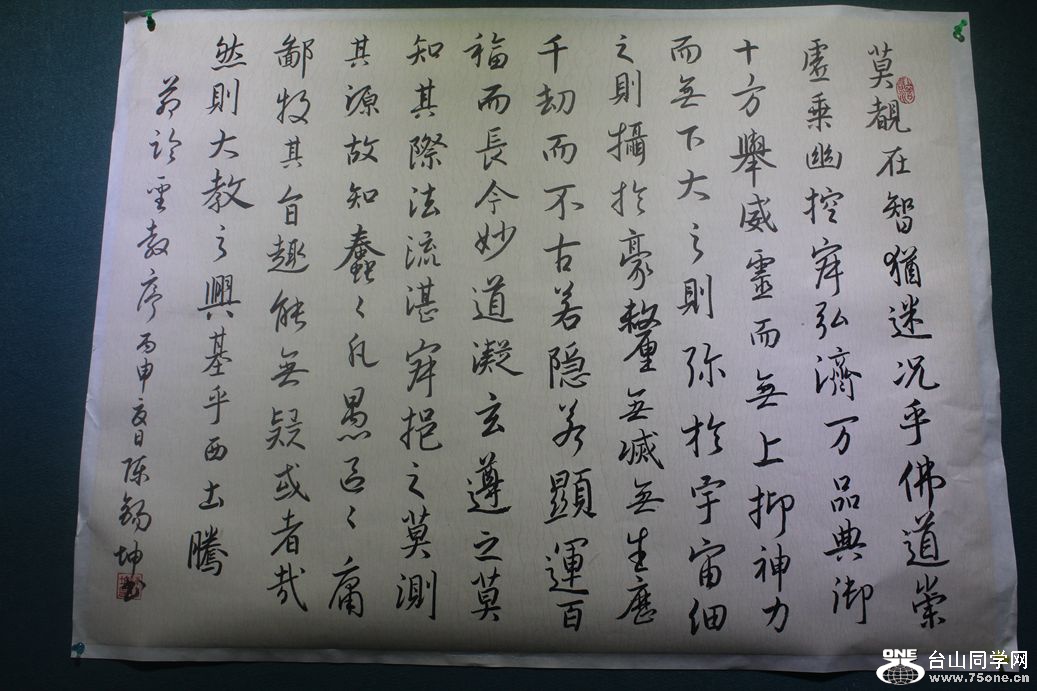 莫覩在智猶迷况乎佛道崇
虛乘幽控寂弘濟万品典御
十方舉威靈而無上抑神力
而無下大之則弥於宇宙細
之則攝於豪釐無滅無生歷
千劫而不古若隐若顯運百
福而長今妙道凝玄遵之莫
知其際法流湛寂挹之莫測
其源故知蠢〻凡愚區〻庸
鄙投其旨趣能無疑或者哉
然則大教之興基乎西土騰
節臨聖教序丙申夏日陈錫坤
ONE 台山同学网
www.75one.cn